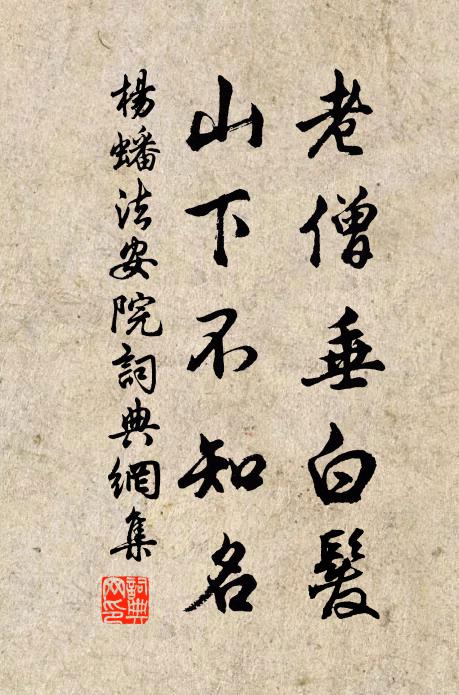 老僧垂白髮
山下不知名
楊蟠法安院詞典網集
詞典網印